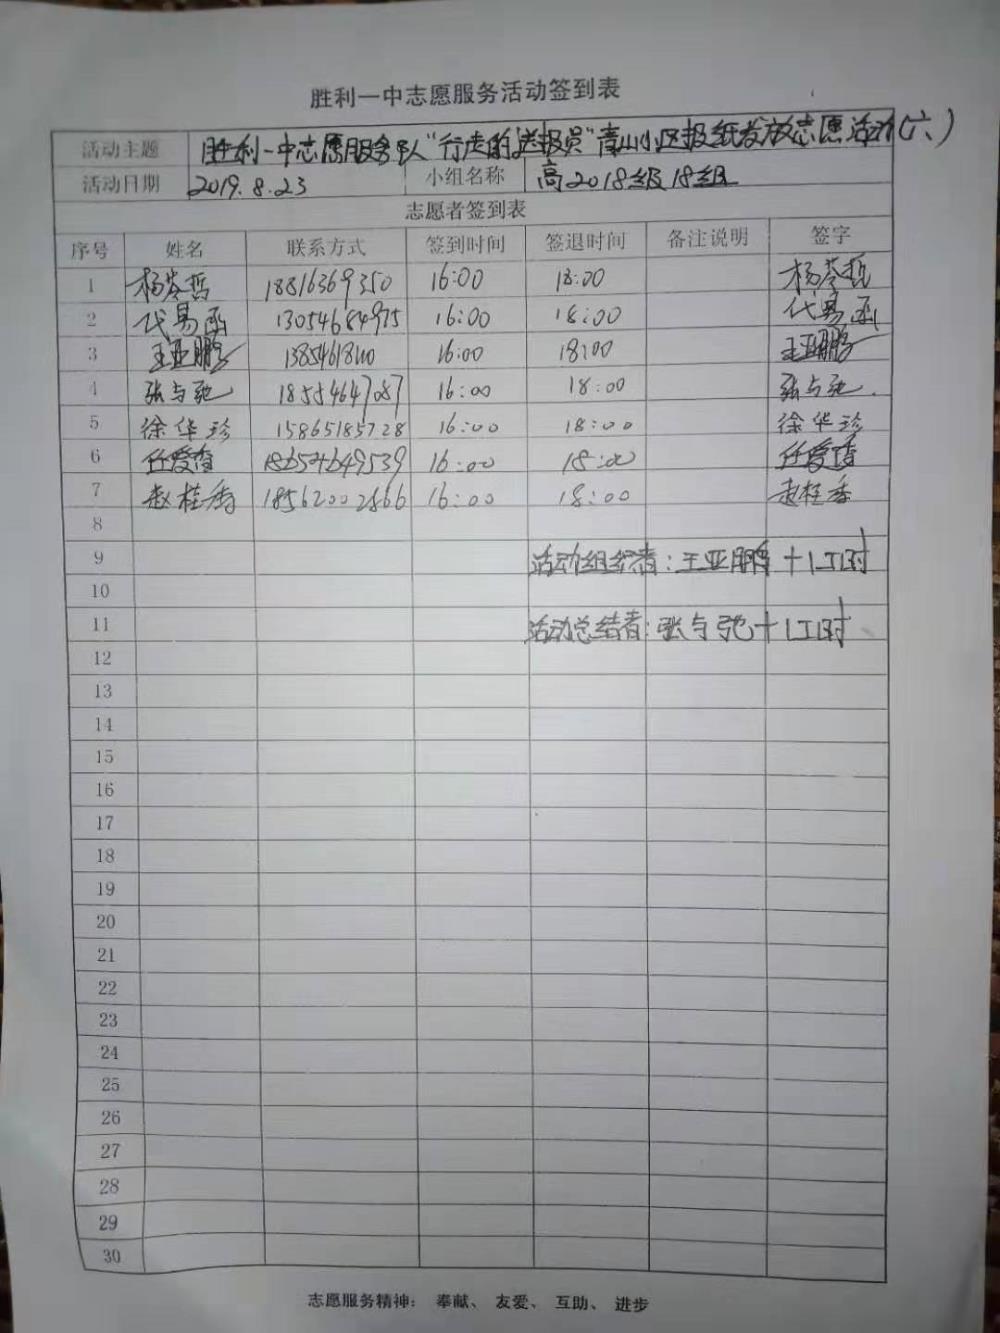 胜利一中志愿服务活动签到表
活动主题 胜利一中志愿服务队"行走的送报员"青山小区报纸发放志愿活动(六)
活动日期 2019.8.23 小组名称 高2018级18组
志愿者签到表
序号 姓名 联系方式 签到时间 签退时间 备注说明 签字
1 杨岑哲 18816369350 16:00 18:00 杨岑哲
2 代易函 13054684975 16:00 18:00 代易函
3 王亚鹏 16:00 18:00 王亚鹏
4 张与弛 18554647087 16:00 18:00 张与弛
5 徐华珍 15865185728 16:00 18:00 徐华珍
6 任爱香 18654649539 16:00 18:00 任爱香
7 赵桂香 18562002866 16:00 18:00 赵桂香
8
9 活动组织者:王亚鹏+1工时
10
11 活动总结者:张与弛+1工时
12
13
14
15
16
17
18
19
20
21
22
23
24
25
26
27
28
29
30
志愿服务精神： 奉献、 友爱、 互助、 进步